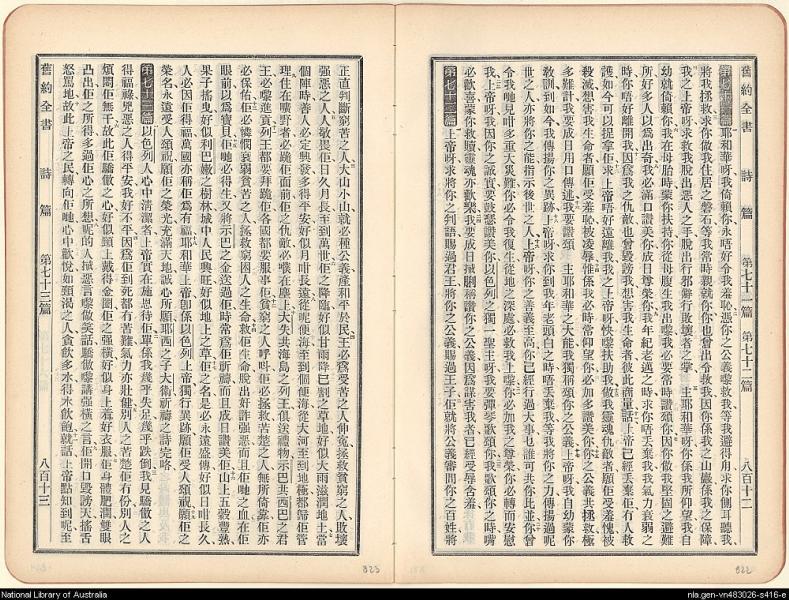 舊約全書 詩篇 第七十一篇 第七十二篇 八百十二
第七十一篇 耶和華呀我倚賴你永唔好令我羞恥憑你之公義嚟救我等我避得用求你側耳聽我
將我拯救求你做我住居之磐石等我常時親就你你也曾出令救我因你係我之山巖係我之保障
我之上帝呀求救我脫出惡人之手脫出行邪僻行敗壞者之掌 主耶和華呀你係我所仰望我自
幼就倚賴你我在母胎時蒙你扶持你從母腹生我出嚟我必要常時讚頌你因你做我堅固之避難
所好多人以為出奇我必滿口讚美你成日尊榮你我年紀老邁之時求你唔丟棄我我氣力衰弱之
時你唔好離開我因為我之仇敵也曾毀謗我想害我生命者彼此商量話上帝已經丟棄佢有人救
護如今可以捉拿佢求上帝唔好遠離我我之上帝呀快嚟扶助我做我靈魂仇敵者願佢受羞愧被
殺滅想害我生命者願佢受羞恥被凌辱惟係我必時常仰望你必加多讚美你你之公義共拯救極
多難計我要成日用口傳述我要讚頌 主耶和華之大能我獨稱頌你之公義上帝呀我自幼蒙你
教訓到如今我傳揚你之異跡上帝呀求你到我年老頭白之時唔丟棄我等我將你之力傳揚過呢
世之人亦將你之能指示後世之人上帝呀你之善義至高你已經行過大事乜誰可共你比並你曾
令我哋見咁多重大災難你必令我復生從地之深處必救我上嚟你必加我之尊榮你必轉而安慰
我上帝呀我因你之誠實要鼓瑟讚美你以色列之獨一聖主呀我要彈琴歌頌你我歌頌你之時嘴
必歡喜蒙你救贖靈魂亦歡樂我要成日掁脷稱讚你之公義因為謀害我者已經受辱含羞
第七十二篇 上帝呀求將你之判語賜過君王將你之公義賜過王子佢就將公義審間你之百姓將
正直判斷窮苦之人大山小山就必種公義產和平於民王必為受苦之人伸冤拯救貧窮之人敗壞
強惡之人人敬畏佢日久月長至到萬世佢之降臨好似甘雨降已割之草地好似大雨滋潤地土當
個陣時善人必定興發多得平安好似月咁長遠從呢便海至到個便海從大河至到地極都歸佢管
理住在曠野者必跪佢面前佢之仇敵必喺在塵土大失共海島之列王俱送禮物示巴共西巴之君
王必嚟進貢列王都要拜跪佢各國都要服事佢貧窮之人呼呌佢必拯救苦楚之人無所倚靠佢亦
必保佑佢必憐憫衰弱貧苦之人拯救窮困人之生命救佢生命脫出好詐強惡而且佢哋之血在佢
眼前以為寶貝佢哋必得生又將示巴之金送過佢時常為佢祈禱而且成日讚美佢山上五穀豐熟
果子搖曳好似利巴嫩之樹林城中人民興旺好似地上之草佢之名是必永遠盛傳好似日咁長久
人必因佢得福萬國亦稱佢為有福耶和華上帝即係以色列上帝獨行異跡願佢受人頌祝願佢之
榮名永遠受人頌祝願佢之榮光充滿天地誠心所願耶西之子大衛祈禱之詩完咯
第七十三篇 以色列人心中清潔者上帝實在施恩待佢單係我幾乎失足幾乎跌倒我見驕傲之人
得福祿兇惡之人得平安我好不平因為佢到死都冇苦難氣力亦壯健別人之苦楚佢冇份別人之
煩悶佢無干故此佢驕傲之心好似頸上戴得金圈佢之強橫好似身上着好衣服佢身體肥潤雙眼
凸出佢之所得多過佢心之所想呢的人掁惡言嚟做笑話驕傲嚟講強橫之言佢開口毀謗天搖舌
怒罵地故此上帝之民轉向佢哋心中歡悅如頸渴之人貪飲多水得水飲飽就話上帝點知到呢至
舊約全書 詩篇 第七十三篇 八百十三
823
822
National Library of Australia
nla.gen-vn483026-s416-e